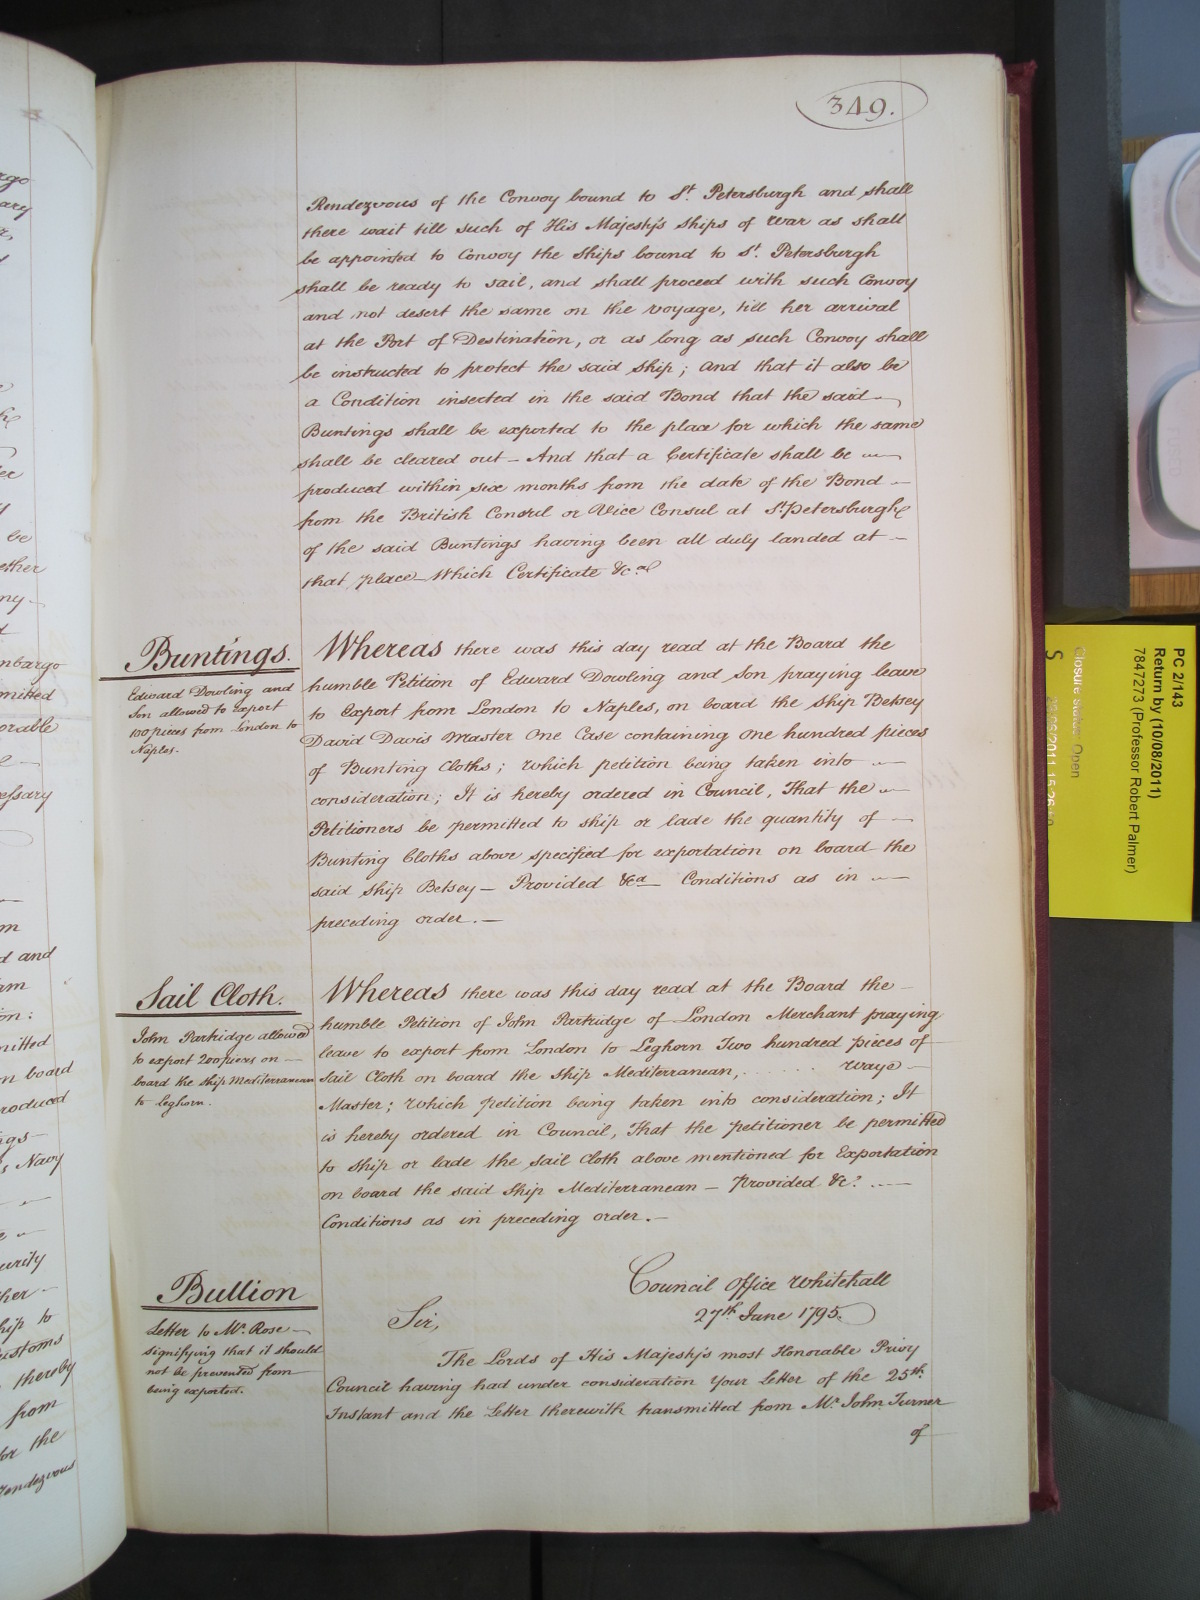 349.
Rendezvous of the Convoy bound to St. Petersburgh and shall
there wait till such of His Majesty's Ships of War as shall
be appointed to Convoy the Ships bound to St. Petersburgh
shall be ready to sail, and shall proceed with such Convoy
and not desert the same on the voyage, till her arrival
at the Port of Destination, or as long as such Convoy shall
be instructed to protect the said Ship; And that it also be
a Condition inserted in the said Bond that the said
Buntings shall be exported to the place for which the same
shall be cleared out - And that a Certificate shall be
produced within six months from the date of the Bond
from the British Consul or Vice Consul at St. Petersburgh
of the said Buntings having been all duly landed at
that place - Which Certificate &ca.
Buntings.
Edward Dowling and
Son allowed to export
100 pieces from London to
Naples.
Whereas there was this day read at the Board the
humble Petition of Edward Dowling and Son praying leave
to Export from London to Naples, on board the Ship Betsey
David Davis Master One Case containing one hundred pieces
of Bunting Cloths; Which petition being taken into
consideration; It is hereby ordered in Council, That the
Petitioners be permitted to ship or lade the quantity of
Bunting Cloths above specified for exportation on board the
said Ship Betsey - Provided &ca Conditions as in
preceding order. -
Sail Cloth.
John Partridge allowed
to export 200 pieces on
board the Ship Mediterranean
to Leghorn.
Whereas there was this day read at the Board the
humble Petition of John Partridge of London Merchant praying
leave to export from London to Leghorn Two hundred pieces of
Sail Cloth on board the Ship Mediterranean, ...... Waye
Master; Which petition being taken into consideration; It
is hereby ordered in Council, That the petitioner be permitted
to ship or lade the Sail Cloth above mentioned for Exportation
on board the said Ship Mediterranean - Provided &c.
Conditions as in preceding order. -
Bullion
Letter to Mr. Rose
signifying that it should
not be prevented from
being exported.
Council Office Whitehall
27th June 1795.
Sir,
The Lords of His Majesty's most Honorable Privy
Council having had under consideration Your Letter of the 25th.
Instant and the Letter therewith transmitted from Mr. John Turner
of
PC 2/143
Return by (10/08/2011)
7847273 (Professor Robert Palmer)
Closure status: Open
S